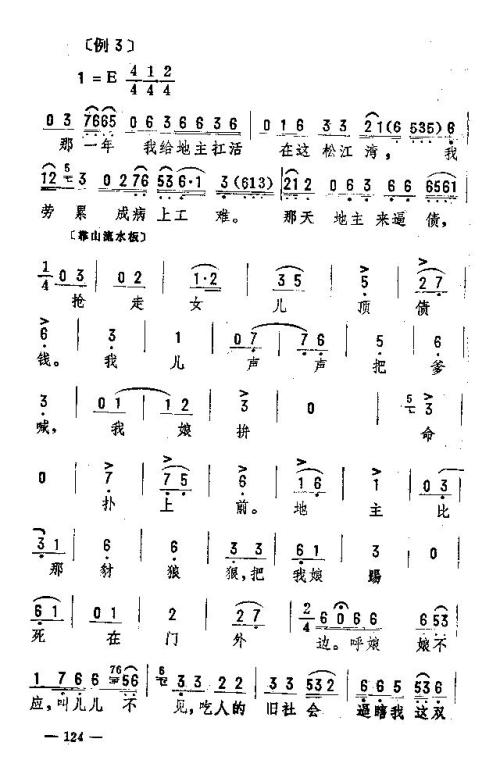 〔例 3〕
1 = E 4/4 1/4 2/4
0 3 7665 0 6 3 6 6 3 6 | 0 1 6 3 3 2 1 ( 6 535 ) 6
那 一年 我给地主扛活 在这 松江湾， 我
12 5 3 0 2 76 53 6·1 3 (613) | 212 0 6 3 6 6 6561
劳 累 成病 上工 难。 那天 地主 来逼 债，
〔靠山流水板〕
1/4 0 3 | 0 2 | 1·2 | 3 5 | 5 | 2 7 |
抢 走 女 儿 顶 债
6 | 3 | 1 | 0 7 | 7 6 | 5 | 6
钱。 我 儿 声 声 把 爹
3 | 0 1 | 1 2 | 3 | 0 | 5 3
喊， 我 娘 拚 命
0 | 7 | 7 5 | 6 | 1 6 | 1 | 0 3
扑 上 前。 地 主 比
3 1 | 6 | 6 | 3 3 | 6 1 | 3 | 0
那 豺 狼 狠，把 我娘 踢
6 1 | 0 1 | 2 | 2 7 | 2/4 6 0 6 6 | 6 53
死 在 门 外 边。呼娘 娘不
1 7 6 6 76 56 | 6 3 3 2 2 | 3 3 532 | 6 6 5 3 6
应，叫儿儿 不 见，吃人的 旧社会 逼瞎我 这双
— 124 —